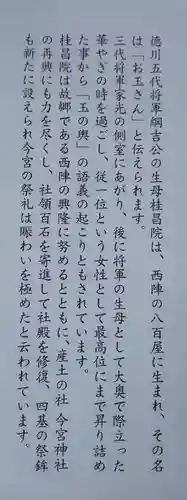 徳川五代将軍綱吉公の生母桂昌院は、西陣の八百屋に生まれ、その名
は「お玉さん」と伝えられます。
三代将軍家光の側室にあがり、後に将軍の生母として大奥で際立った
華やぎの時を過ごし、従一位という女性として最高位にまで昇り詰め
た事から「玉の輿」の語義の起こりともされています。
桂昌院は故郷である西陣の興隆に努めるとともに、産土の社 今宮神社
の再興にも力を尽くし、社領百石を寄進して社殿を修復、四基の祭鉾
も新たに設えられ今宮の祭礼は賑わいを極めたと云われています。